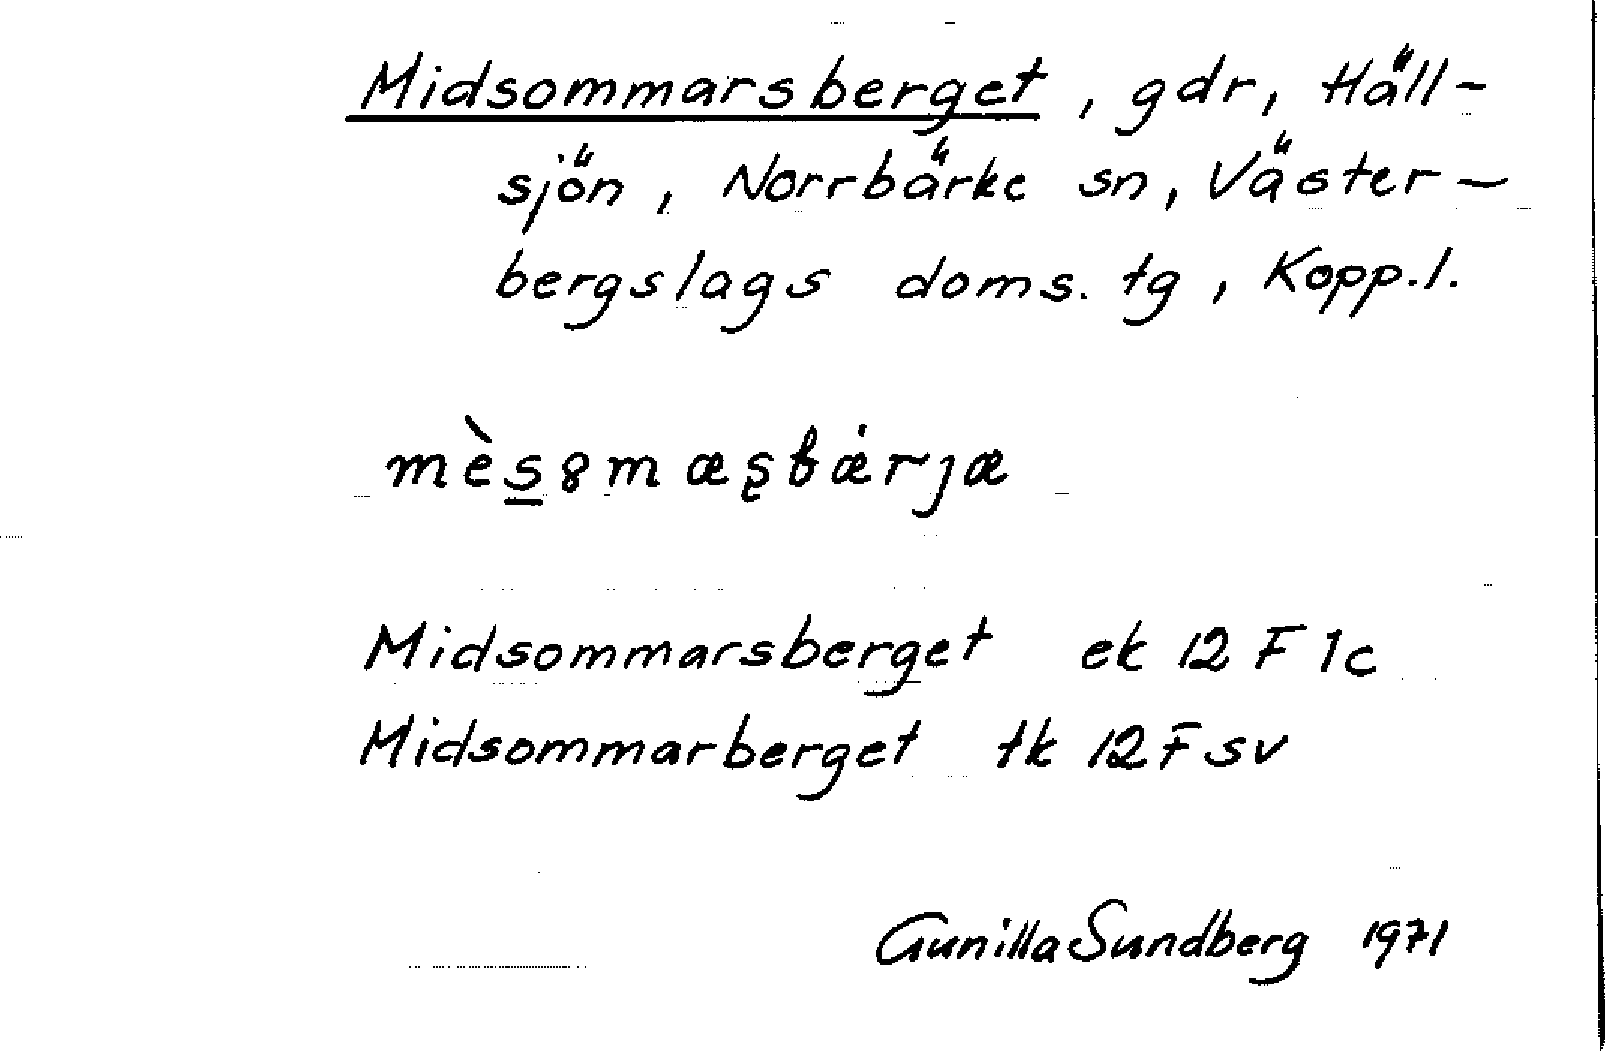 Midsommarsberget, gdr, Häll-
sjön, Norrbärke sn, Väster-
bergslags doms. tg, Kopp.l.
mès̲8mæʂbǽrjæ
Midsommarsberget ek 12 F 1c
Midsommarberget tk 12 F sv
Gunilla Sundberg 1971